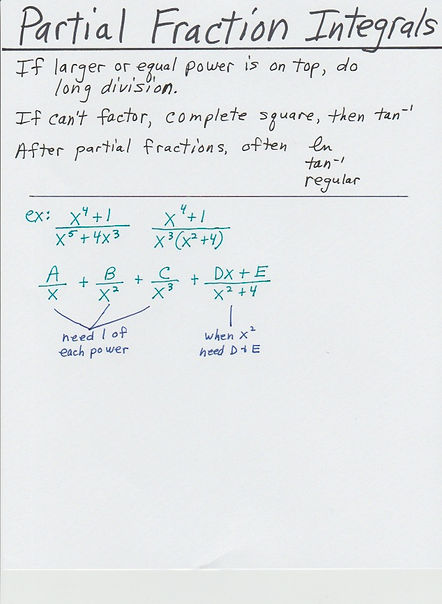 Partial Fraction Integrals
If larger or equal power is on top, do
long division.
If can't factor, complete square, then tan⁻¹
After partial fractions, often ln
tan⁻¹
regular
ex: x⁴+1 / x⁵+4x³    x⁴+1 / x³(x²+4)
A/x + B/x² + C/x³ + Dx+E / x²+4
need 1 of
each power
when x²
need D+E